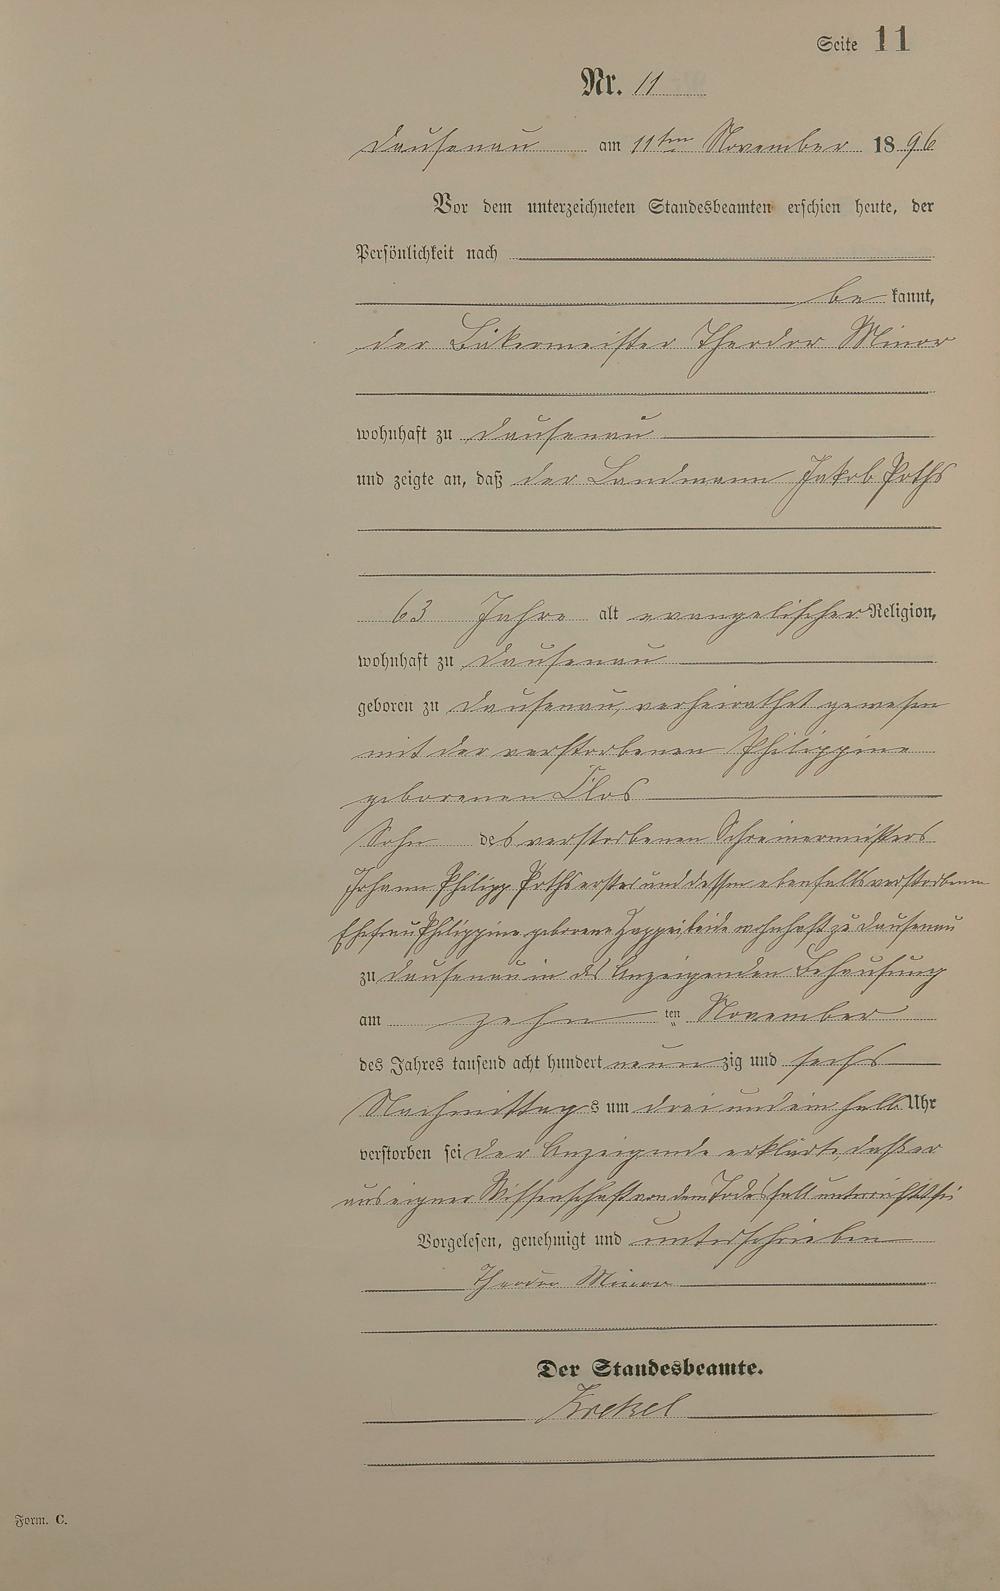 Seite 11
Nr. 11
Dausenau am 11ten November 1896
Vor dem unterzeichneten Standesbeamten erschien heute, der
Persönlichkeit nach
be kannt,
der Bäkermeister Theodor Minor
wohnhaft zu Dausenau
und zeigte an, daß der Landmann Jakob Poths
63 Jahre alt evangelischer Religion,
wohnhaft zu Dausenau
geboren zu Dausenau, verheirathet gewesen
mit der verstorbenen Philippine
geborenen Clos
Sohn des verstorbenen Schreinermeisters
Johann Philipp Poths erster und dessen ebenfalls verstorbenen
Ehefrau Philippine geborene beide wohnhaft zu Dausenau
zu Dausenau in des Anzeigenden Behausung
am zehn ten November
des Jahres tausend acht hundert neun zig und sechs
Nachmittag s um drei und ein halb Uhr
verstorben sei der Anzeigende erklärte, daß er
aus eigner Wissenschaft von dem Todesfall unterrichtet sei
Vorgelesen, genehmigt und unterschrieben
Theodor Minor
Der Standesbeamte.
Krekel
Form. C.